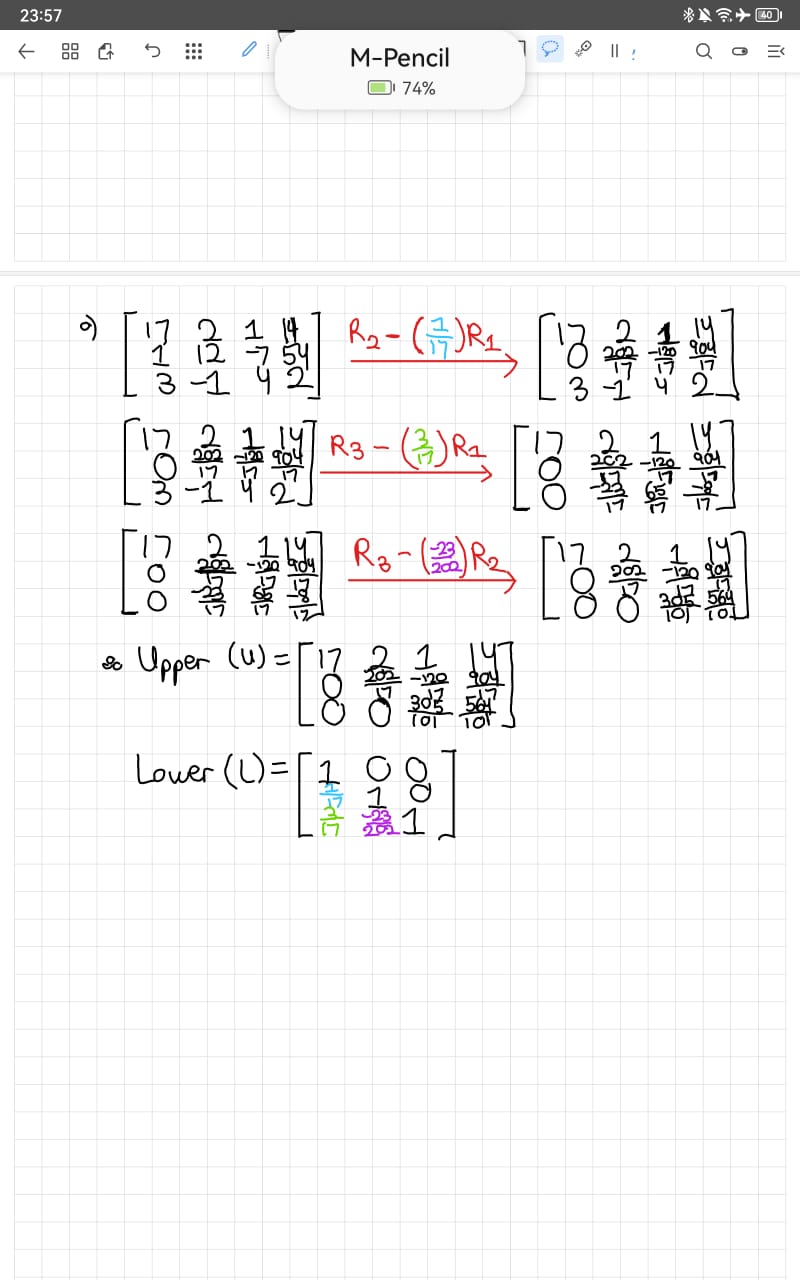 23:57
40
M-Pencil
74%
a) [17 2 1 14; 1 12 -7 54; 3 -1 4 2] R2 - (1/17)R1 → [17 2 1 14; 0 202/17 -120/17 904/17; 3 -1 4 2]
[17 2 1 14; 0 202/17 -120/17 904/17; 3 -1 4 2] R3 - (3/17)R1 → [17 2 1 14; 0 202/17 -120/17 904/17; 0 -23/17 65/17 -8/17]
[17 2 1 14; 0 202/17 -120/17 904/17; 0 -23/17 65/17 -8/17] R3 - (-23/202)R2 → [17 2 1 14; 0 202/17 -120/17 904/17; 0 0 305/101 564/101]
∴ Upper (U) = [17 2 1 14; 0 202/17 -120/17 904/17; 0 0 305/101 564/101]
Lower (L) = [1 0 0; 1/17 1 0; 3/17 -23/202 1]